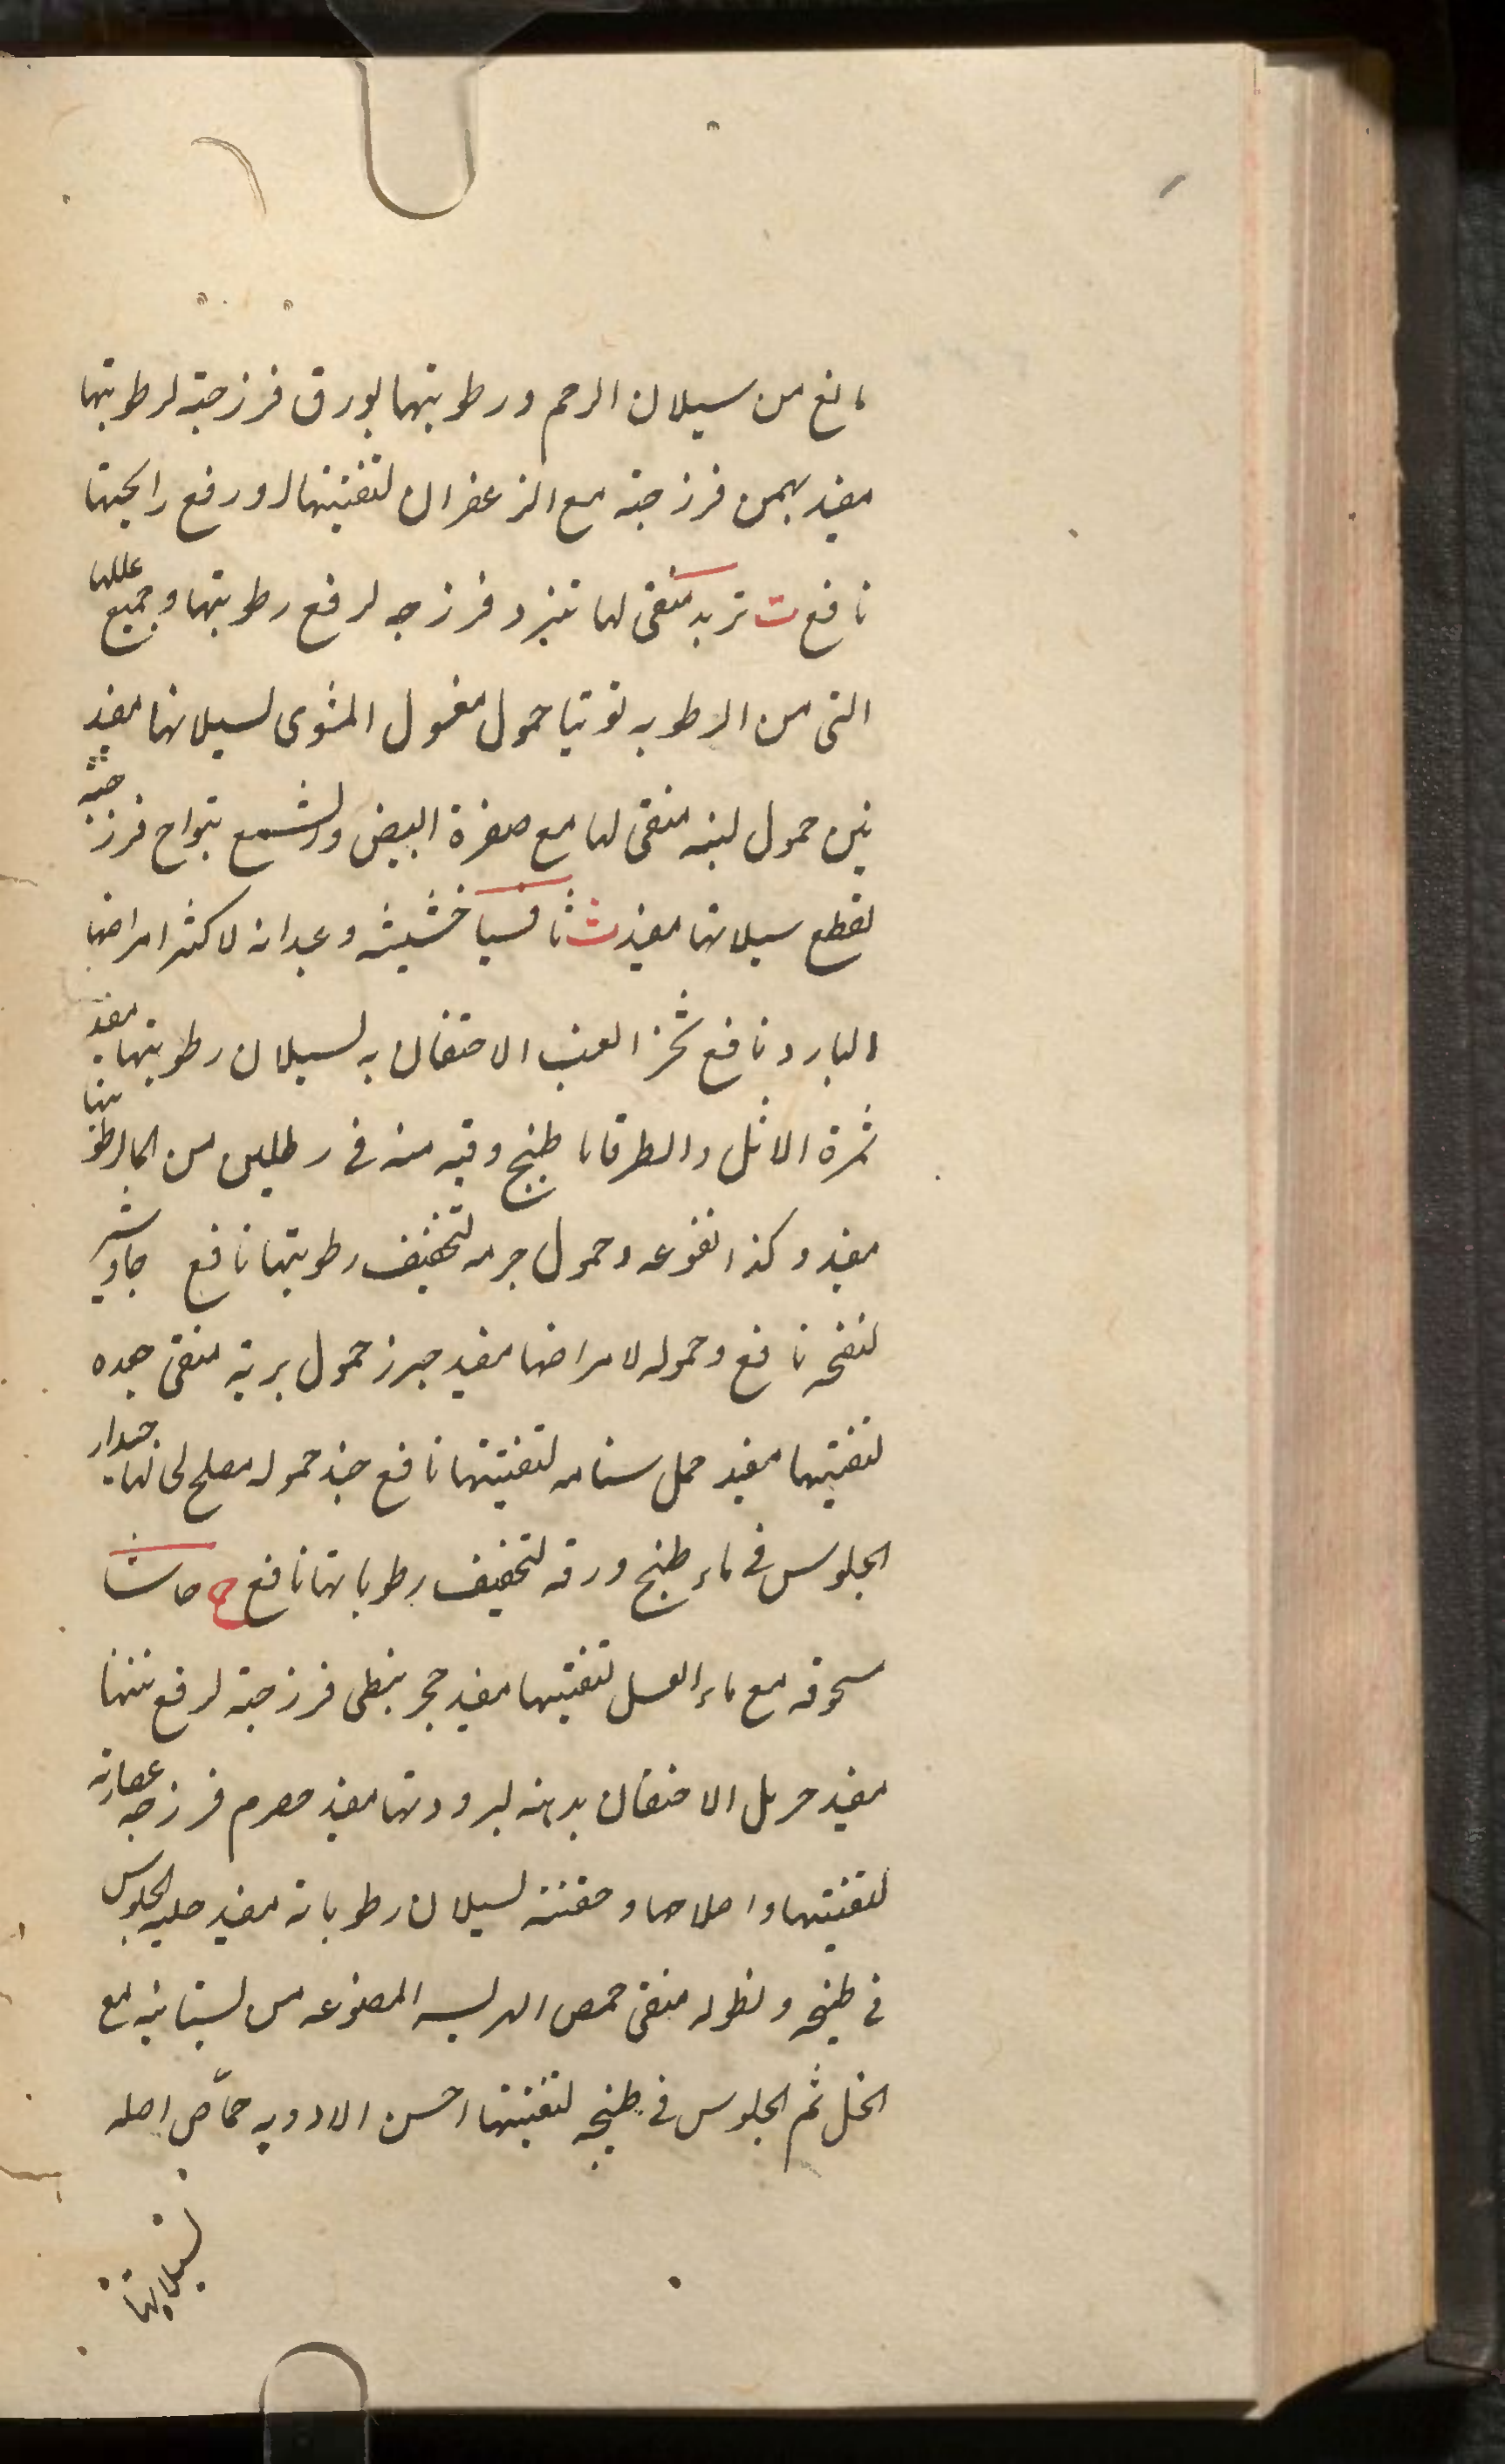 مانع من سيلان الرحم ورطوبتها بورق فرزجة لرطوبتها
مفيد بهمن فرزجة مع الزعفران لتنقيتها ورفع رايحتها
نافع ت تربد منقى لها تنزد فرزجه لرفع رطوبتها وجميع عللها
التى من الرطوبه توتيا حمول مغسول المشوى لسيلانها مفيد
تين حمول لبنه منقى لها مع صفرة البيض والشمع فرزجة
لقطع سيلانها مفيد ث ثافسيا خشيشه وعيدانه لاكثر امراضها
البارد نافع ثجز العنب الاحتقان به لسيلان رطوبتها مفيد
ثمرة الاثل والطرفا طبخ وقيه منه فى رطلين من الما لرطوبتها
مفيد وكذا نقوعه وحمول جرمه لتجفيف رطوبتها نافع جاوشير
لنفخه نافع وحموله لامراضها مفيد جزر حمول بريه منقى جعده
لتنقيتها مفيد جمل سنامه لتنقيتها نافع جند حموله مصلح لحالها جدوار
الجلوس فى ماء طبخ ورقه لتجفيف رطوباتها نافع ح حاشا
سحوقه مع ماء العسل لتنقيتها مفيد حجر نبطى فرزجة لرفع نتنها
مفيد حرمل الاحتقان بدهنه لبرودتها مفيد حصرم فرزجه عصارته
لتنقيتها واصلاحها وحقنته لسيلان رطوباته مفيد حلبه الجلوس
فى طبيخه ونطوله منقى حمص الهريسه المصنوعه من بستانيه مع
الخل ثم الجلوس فى طبخه لتنقيتها احسن الادويه حماّض اصله
لسيلانها